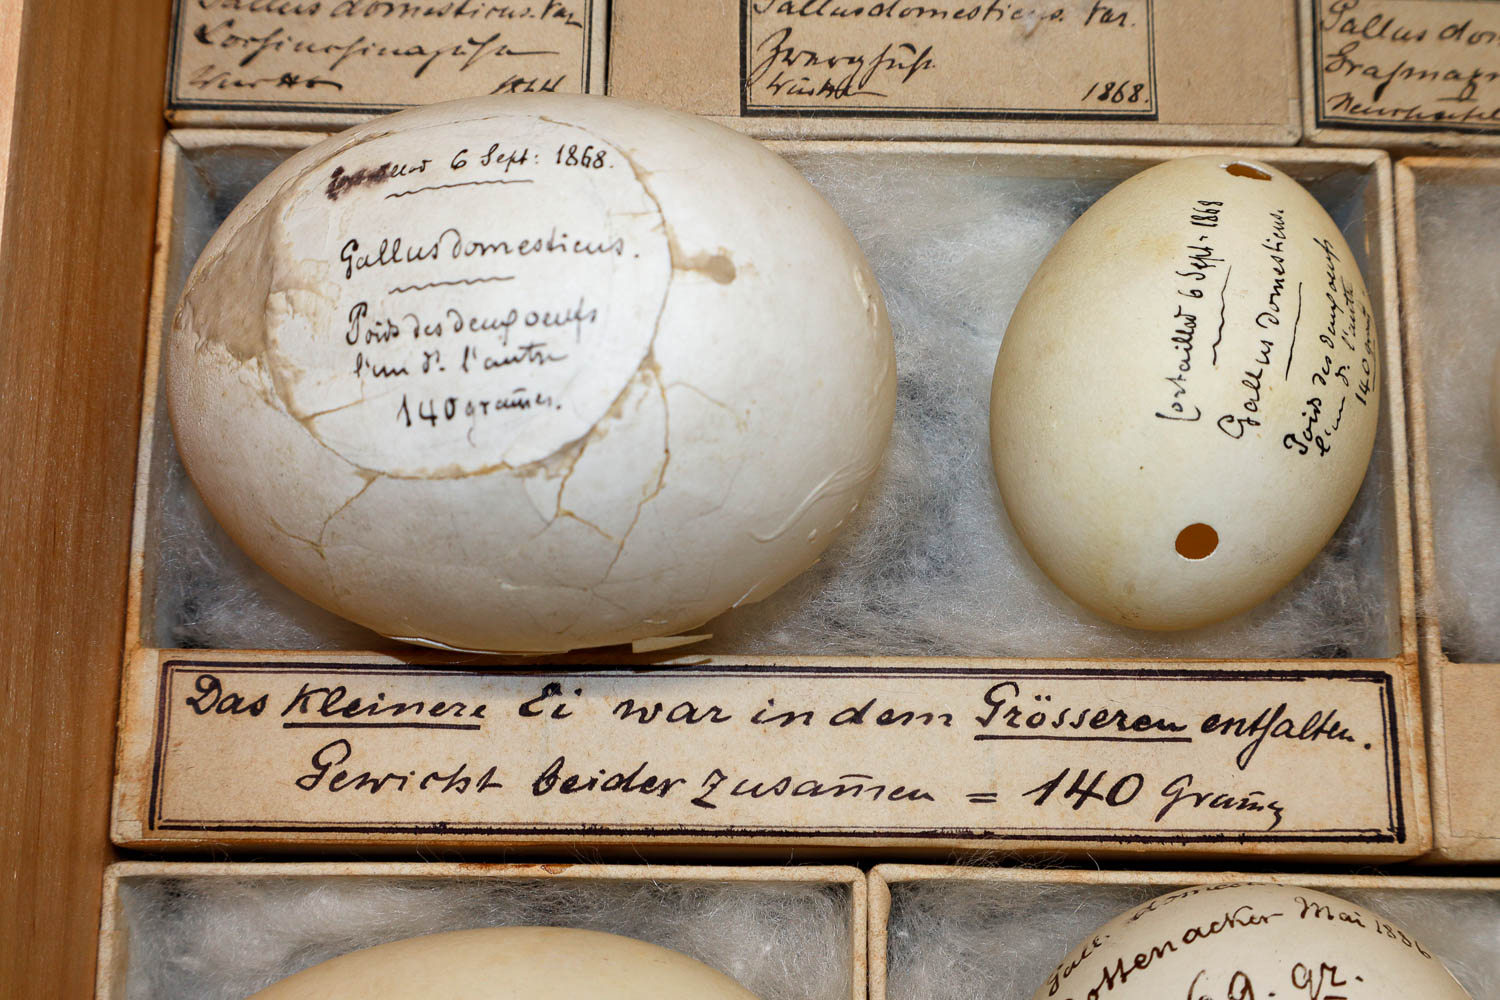 Gallus domesticus. Var.
1864
Gallus domesticus. Var.
Zwerghuhn
1868.
Gallus dom
6 Sept: 1868.
Gallus domesticus.
Poids des deux oeufs
l'un ds. l'autre
140 gram̄es.
Cortaillod 6 Sept: 1868
Gallus domesticus.
Poids des deux oeufs
l'un ds. l'autre
140 gram̄
Das Kleinere Ei war in dem Grösseren enthalten.
Gewicht beider zusam̄en = 140 Gram̄
Gall. domest
Rottenacker Mai 1886
gr.